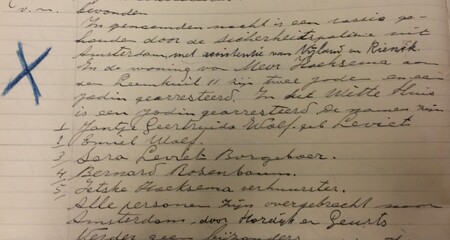 v.m. bevonden
In genoemden nacht is een razzia ge-
houden door de sicherheitspolizie uit
Amsterdam, met assistentie van Vijland en Rienik
In de woning van Mevr Hoeksema aan
den Leemkuil 11 zijn twee joden en een
jodin gearresteerd. In het Witte Huis
is een jodin gearresteerd De namen zijn
1 Jansje Geertruida Wolf. geb Leviet
1 Emiel Wolf.
3 Sara Levlet Borgeboer.
4 Bernard Rosenbaum.
5 Jetske Hoeksema verhuurster.
Alle personen zijn overgebracht naar
Amsterdam door Hordijk en Geurts
Verder geen bijzonder